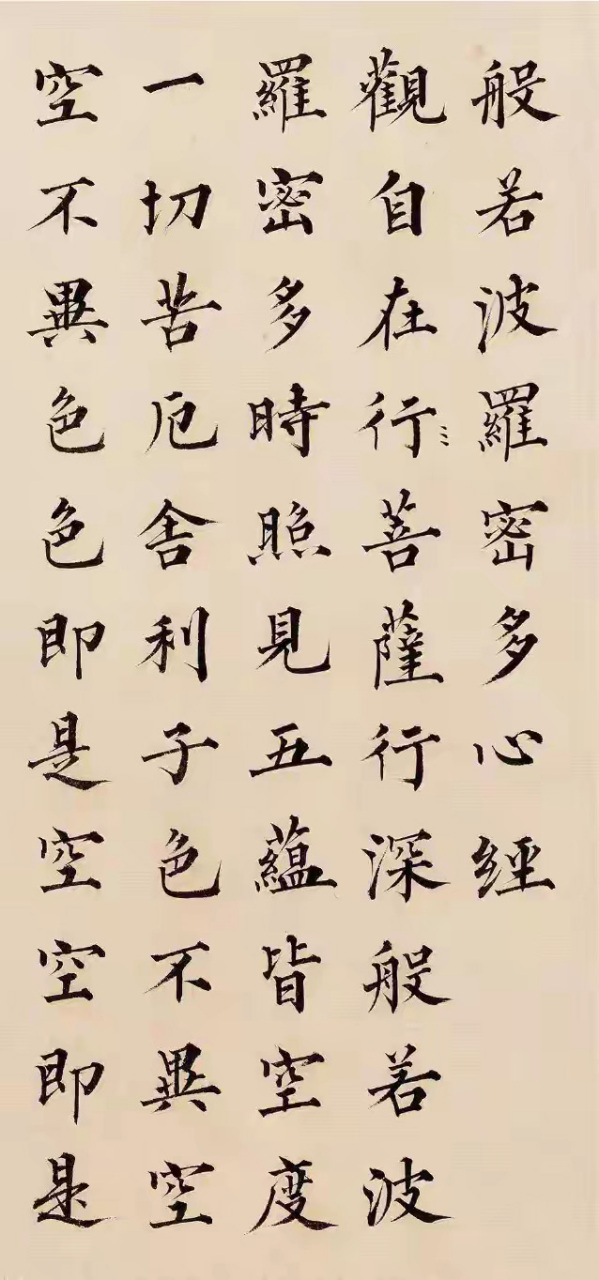 般若波羅密多心經
觀自在行菩薩行深般若波
羅密多時照見五蘊皆空度
一切苦厄舎利子色不異空
空不異色色即是空空即是